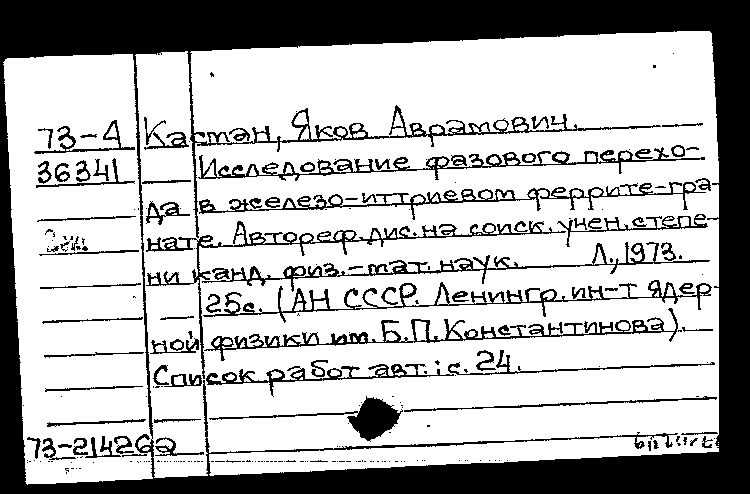 73-4 Кастан, Яков Аврамович.
36341 Исследование фазового перехо-
да в железо-иттриевом феррите-гра-
2 эк. нате. Автореф. дис. на соиск. учен. степе-
ни канд. физ.-мат. наук. Л., 1973.
25с. (АН СССР. Ленингр. ин-т ядер-
ной физики им. Б.П. Константинова).
Список работ авт.: с. 24.
73-21426